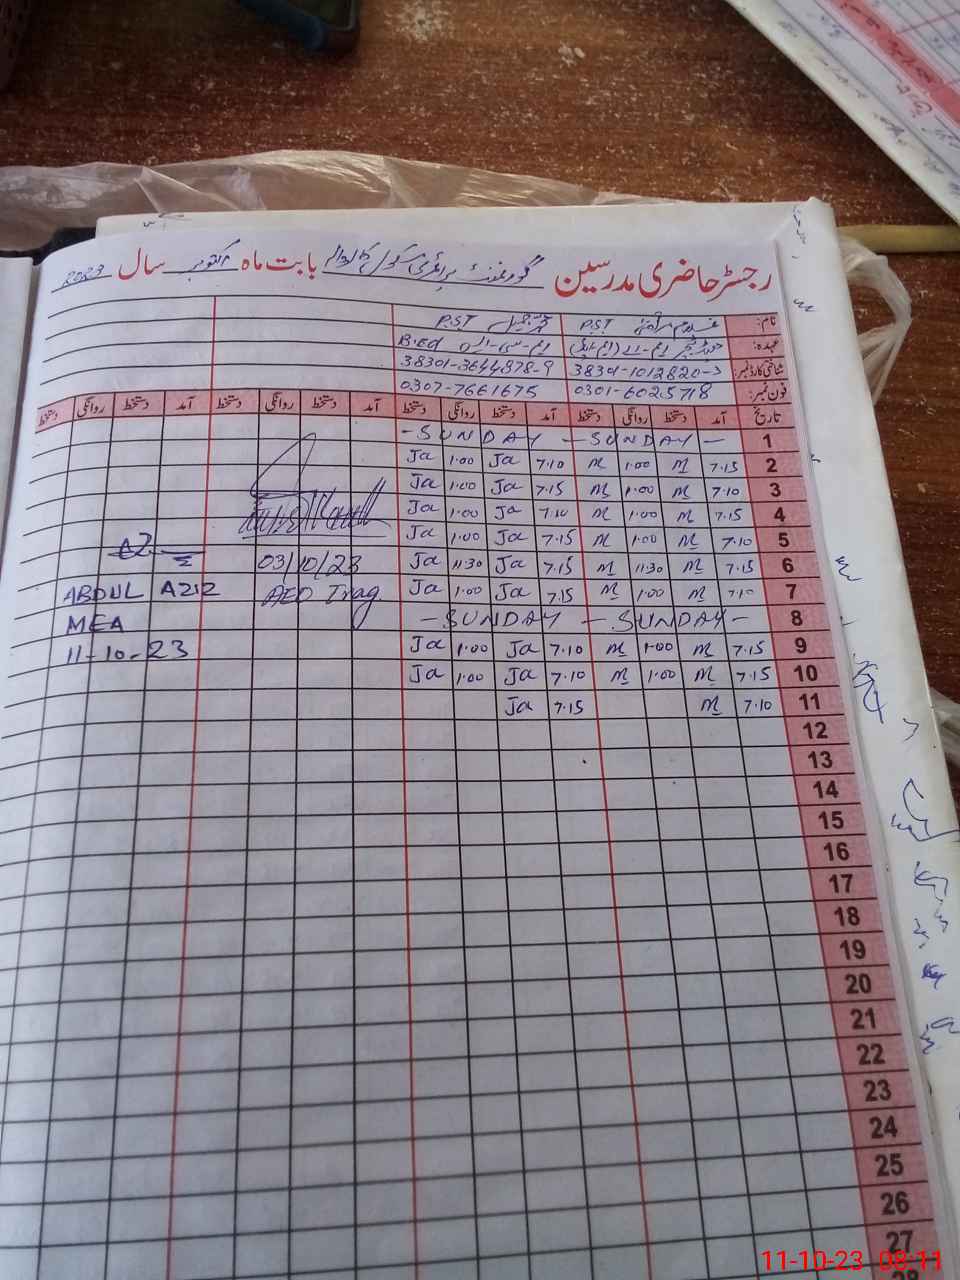 رجسٹر حاضری مدرسین گورنمنٹ پرائمری سکول بابت ماہ اکتوبر سال 2023
نام: غلام P.S.T P.S.T
عہدہ: B.Ed
شناختی کارڈ نمبر: 38301-3644878-9
فون نمبر: 0301-6025718 0307-7661675
تاریخ آمد دستخط روانگی دستخط آمد دستخط روانگی دستخط آمد دستخط روانگی دستخط آمد دستخط روانگی دستخط
1 - SUNDAY - SUNDAY -
2 7.15 M 1.00 M 7.10 Ja 1.00 Ja
3 7.10 M 1.00 M 7.15 Ja 1.00 Ja
4 7.15 M 1.00 M 7.10 Ja 1.00 Ja
5 7.10 M 1.00 M 7.15 Ja 1.00 Ja
6 7.15 M 11.30 M 7.15 Ja 11.30 Ja
7 7.10 M 1.00 M 7.15 Ja 1.00 Ja
8 - SUNDAY - SUNDAY -
9 7.15 M 1.00 M 7.10 Ja 1.00 Ja
10 7.15 M 1.00 M 7.10 Ja 1.00 Ja
11 7.10 M 7.15 Ja
03/10/23
AEO Trag
ABDUL AZIZ
MEA
11-10-23
12
13
14
15
16
17
18
19
20
21
22
23
24
25
26
27
11-10-23 08:11